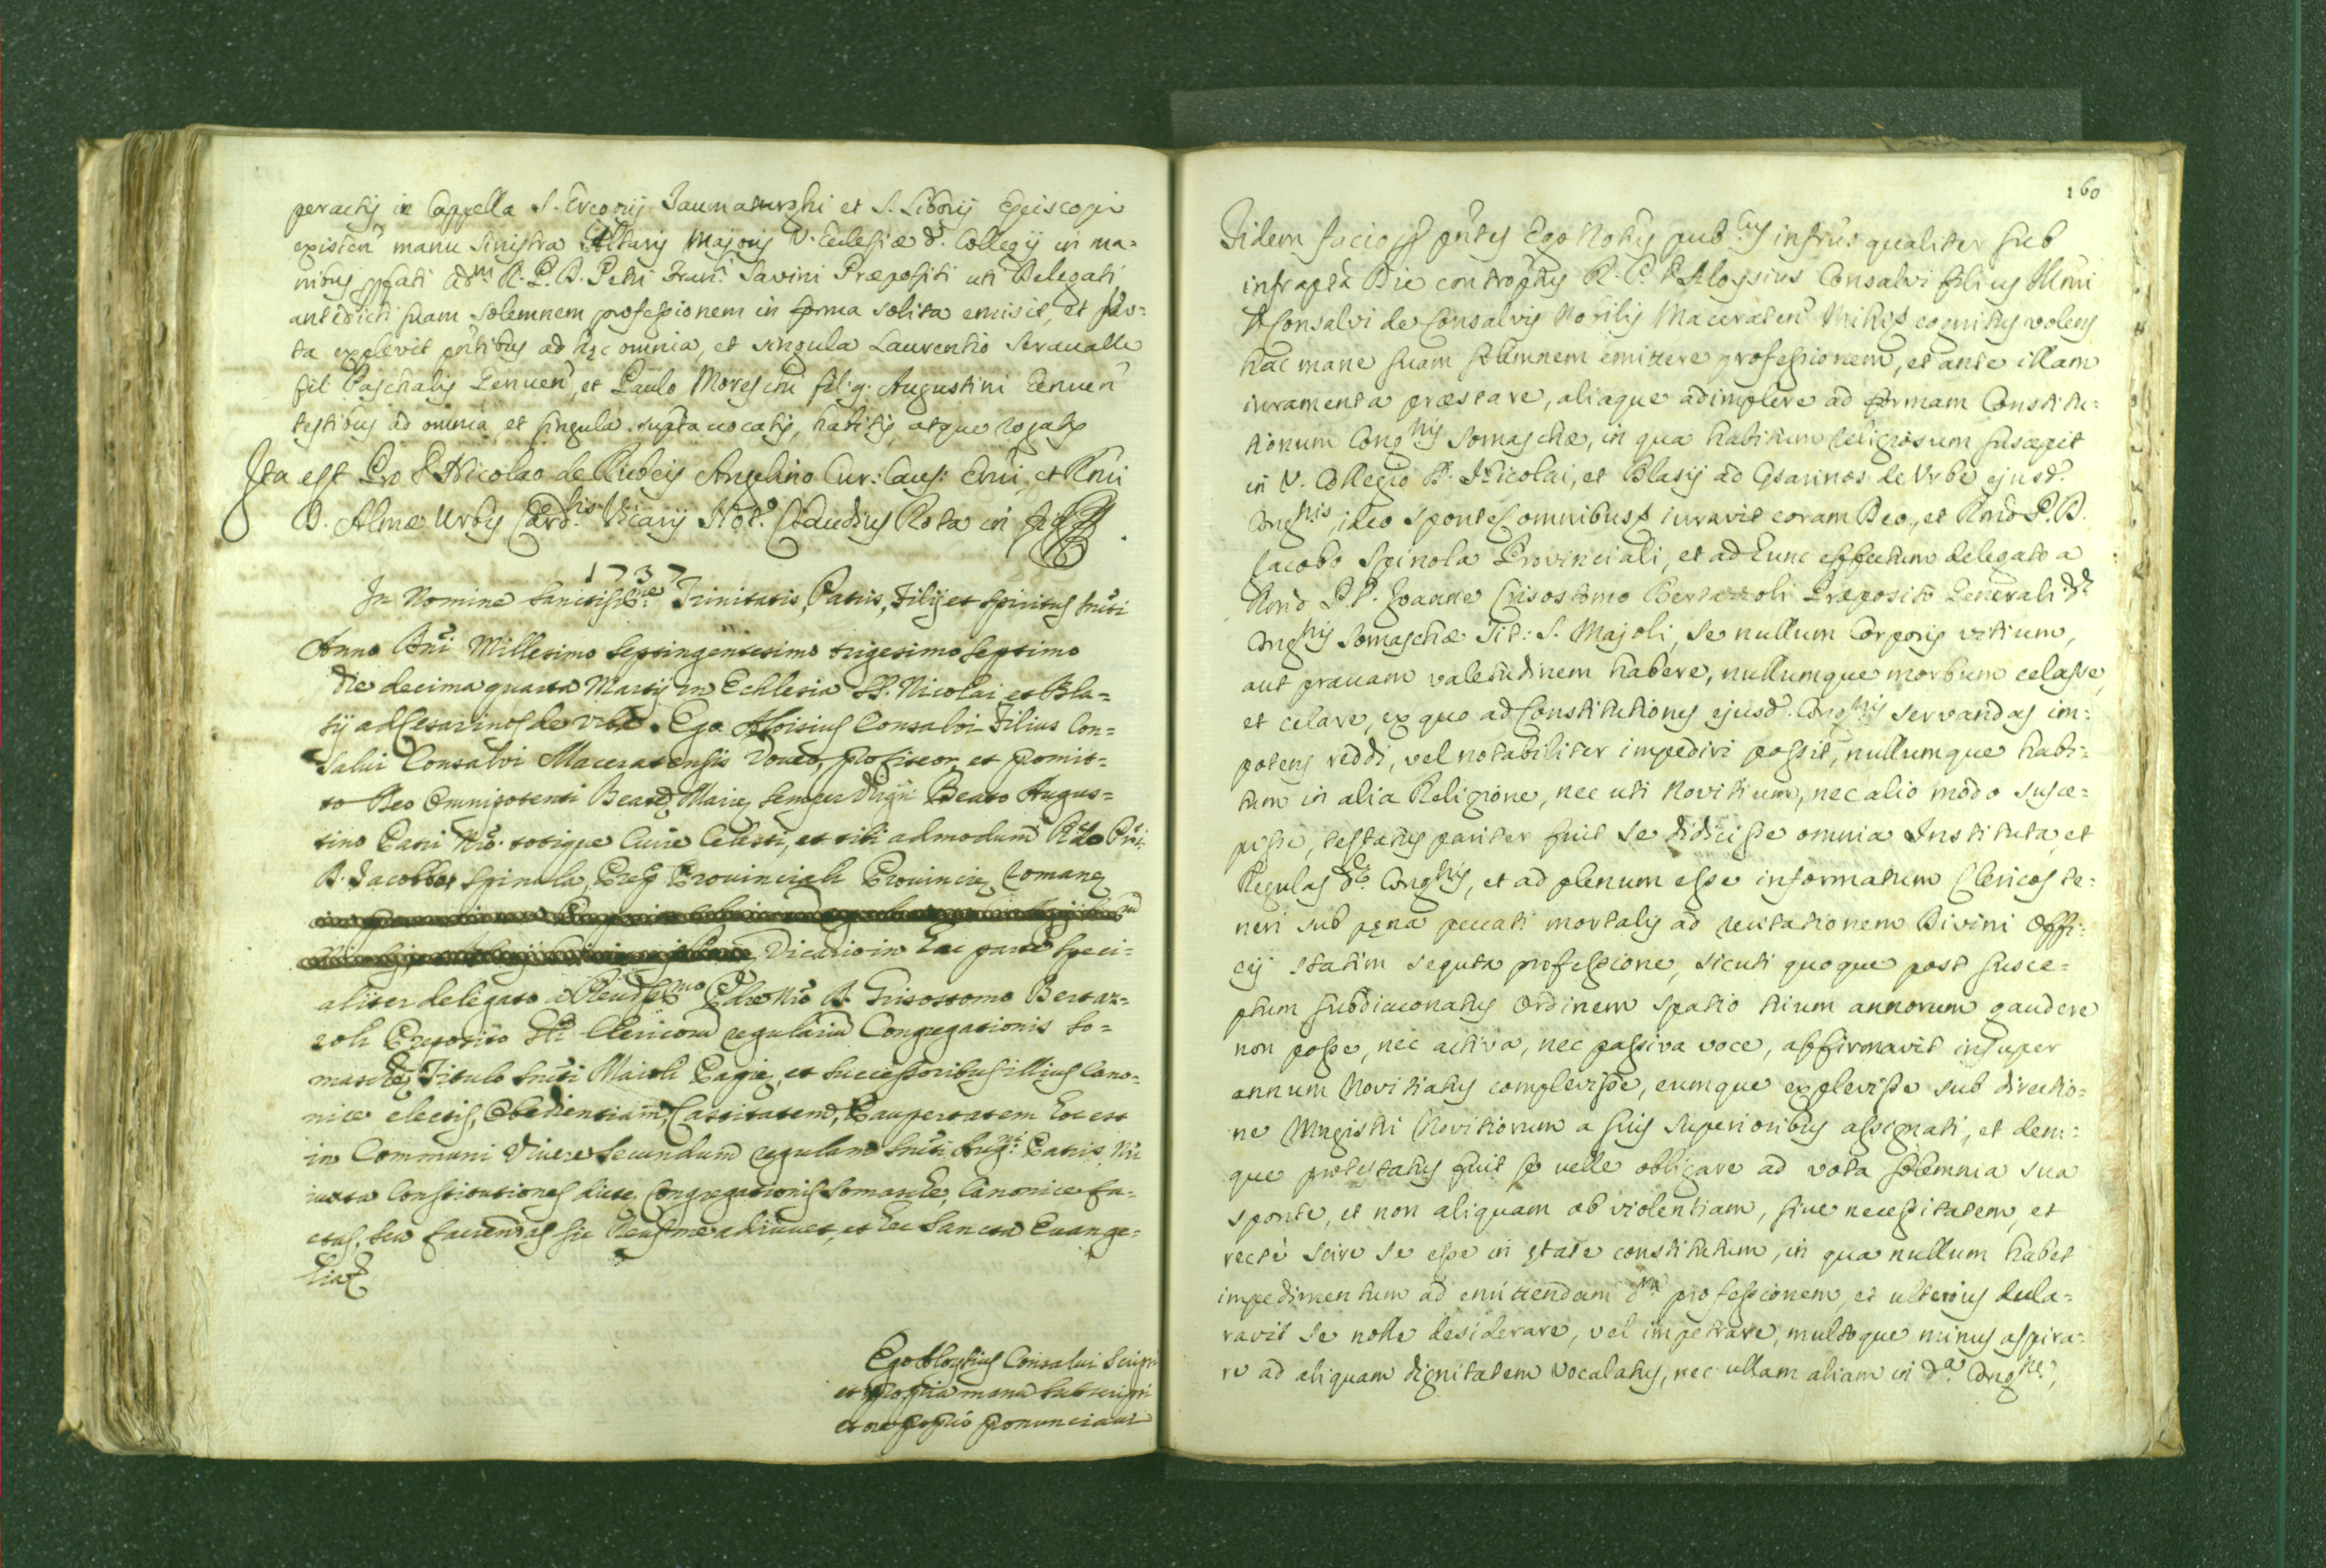 peractis in Cappella S. Gregorij Taumaturghi et S. Liborij Episcopi
existen manu sinistra Altaris Majoris V. Ecclesiæ d. Collegij in ma=
nibus pfati adm R. P. D. Petri Fran. Savini Præpositi uti Delegati
antedicti suam solemnem professionem in forma solita emisit, et
ta explevit pntibus ad hęc omnia, et singula Laurentio Seravalle
fil Paschalis Genuen, et Paulo Moreschi fil. q. Augustini Genuen
testibus ad omnia et singula supta vocatis, habitis, atque rogatis
Ita est Pro D Nicolao de Rubeis Angelino Cur: Caus: Emi, et Rmi
D. Almæ Urbis Card. Vicarij Not. Claudius Rota in
1737
In Nomine Sanctissme Trinitatis, Patris, Filij et Spiritus Sncti
Anno Dni Millesimo Septingentesimo trigesimo septimo
die decima quarta Martij in Ecclesia SS. Nicolai et Bla=
sij ad Cesarinos de Urbe. Ego Aloisius Consalvi Filius Con=
salvi Consalvi Maceratensis Voveo, profiteor, et promit=
to Deo Omnipotenti Beatę Marię semper Virgini Beato Augus=
tino Patri Nro. totique Curie Celesti, et tibi admodum Rdo Pri
D. Jacobo Spinola, Prep Provinciali Provincię Romanę
Vicario in hac parte speci=
aliter delegato a Reudssmo Pdre Nro D. Grisostomo Bertaz=
zoli Preposito Gli Clericorum regularium Congregationis So=
maschę, Titulo Sncti Maioli Papię, et successoribus illius Cano=
nice electis, Obedientiam, Castitatem, Paupertatem hoc est
in Communi Vivere secundum regulam Sncti Augni. Patris Nri
iuxta Constitutiones dicte Congregationis Somasche, Canonice fa=
ctas, seu faciendas sic Deus me adiuvet, et hec Sancta Evange=
lia
Ego Aloysius Consalvi scripsi
et propria manu subscripsi
et ore proprio pronunciavi
160
Fidem facio pntes Ego Notus pubcus infrus qualiter sub
infrapta Die controptus R. P. D Aloysius Consalvi filius Illmi
D Consalvi de Consalvis Nobilis Maceraten Mihi cognitus volens
hac mane suam solemnem emittere professionem, et ante illam
iuramenta præstare, aliaque adimplere ad formam Constitu=
tionum Congnis Somaschæ, in qua habitum religiosum suscepit
in V. Collegio D. Nicolai, et Blasij ad Cesarinos de Urbe ejusd.
Congnis, ideo sponte omnibus iuravit coram Deo, et Rmo P. D.
Jacobo Spinola Provinciali, et ad hunc effectum delegato a
Rmo P. D. Joanne Crisostomo Bertazzoli Præposito Generali d.
Congnis Somaschæ Tit: S. Majoli, se nullum Corporis vitium,
aut pravam valetudinem habere, nullumque morbum celasse,
et celare, ex quo ad Constitutiones ejusd. Congnis servandas im=
potens reddi, vel notabiliter impediri possit, nullumque habi=
tum in alia Religione, nec uti Novitium, nec alio modo susce=
pisse, testatus pariter fuit se didicisse omnia Instituta, et
Regulas d. Congnis, et ad plenum esse informatum Clericos te=
neri sub pęna peccati mortalis ad recitationem Divini Offi=
cij statim sequta professione, sicuti quoque post susce=
ptum subdiaconatus Ordinem spatio trium annorum gaudere
non posse, nec activa, nec passiva voce, affirmavit insuper
annum Novitiatus complevisse, eumque explevisse sub directio=
ne Magistri Novitiorum a suis Superioribus assignati, et deni=
que protestatus fuit se velle obligare ad vota solemnia sua
sponte, et non aliquam ob violentiam, sive necessitatem, et
recte scire se esse in ętate constitutum, in qua nullum habet
impedimentum ad emittendam dm professionem, et ulterius decla=
ravit se nolle desiderare, vel impetrare, multoque minus aspira=
re ad aliquam dignitatem Vocalatus, nec ullam aliam in da Congne,